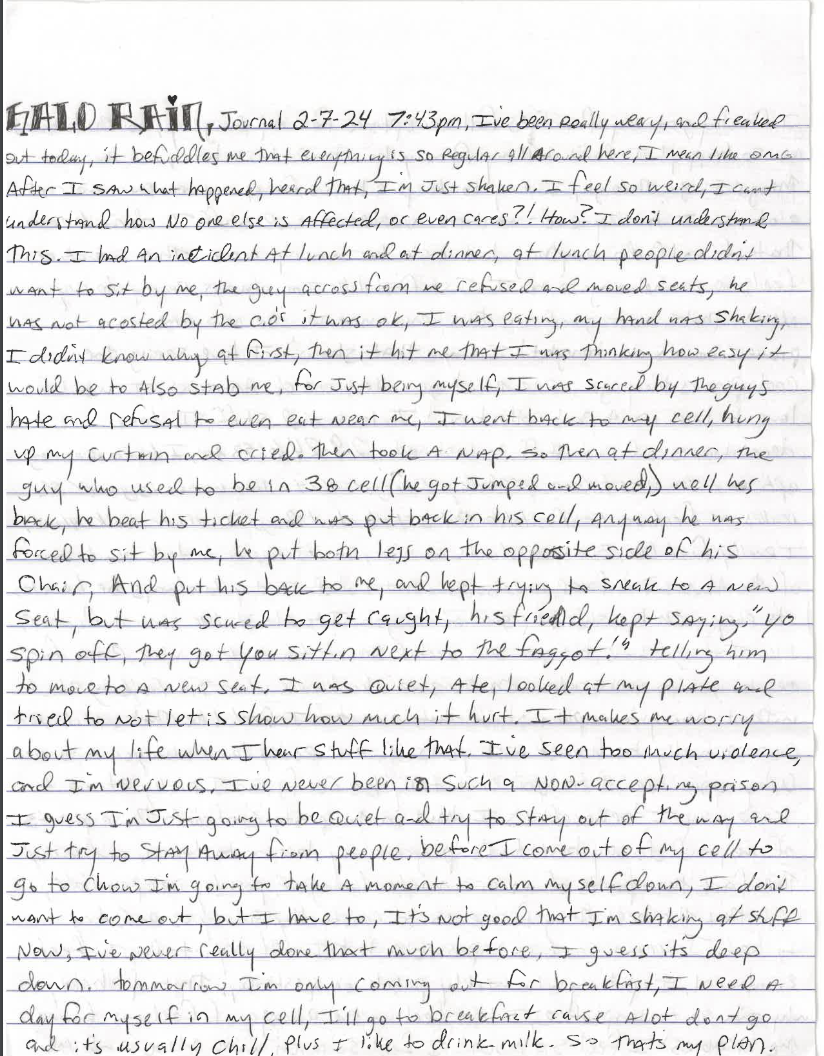 HALO RAIN, Journal 2-7-24 7:43pm, I've been really weary, and freaked
out today, it befuddles me that everything is so Regular all Around here, I mean like OMG
After I SAW what happened, heard that, I'm Just shaken. I feel so weird, I cant
understand how NO one else is Affected, or even cares?! How? I don't understand
This. I had An incident At lunch and at dinner, at lunch people didn't
want to sit by me, the guy across from me refused and moved seats, he
was not acosted by the C.O's it was ok, I was eating, my hand was shaking,
I didn't know why at first, then it hit me that I was thinking how easy it
would be to Also stab me, for Just being myself, I was scared by the guys
hate and refusal to even eat near me, I went back to my cell, hung
up my curtain and cried. then took A NAP. So then at dinner, the
guy who used to be in 38 cell (he got Jumped and moved,) well hes
back, he beat his ticket and was put back in his cell, Anyway he was
forced to sit by me, he put both legs on the opposite side of his
Chair, And put his back to me, and kept trying to sneak to A new
Seat, but was scared to get caught, his friend, kept saying, "yo
spin off, they got you sittin next to the faggot!" telling him
to move to A new seat. I was Quiet, Ate, looked at my plate and
tried to not let is show how much it hurt. It makes me worry
about my life when I hear stuff like that. I've seen too much violence,
and I'm nervous. I've never been in such a NON-accepting prison
I guess I'm Just going to be Quiet and try to stay out of the way and
Just try to STAY AWAY from people, before I come out of my cell to
go to chow I'm going to take A moment to calm myself down, I don't
want to come out, but I have to, It's not good that I'm shaking at stuff
Now, I've never really done that much before, I guess its deep
down. tommarrow I'm only coming out for breakfast, I need A
day for myself in my cell, I'll go to breakfact cause Alot dont go
and it's usually Chill, plus I like to drink milk. So thats my plan.